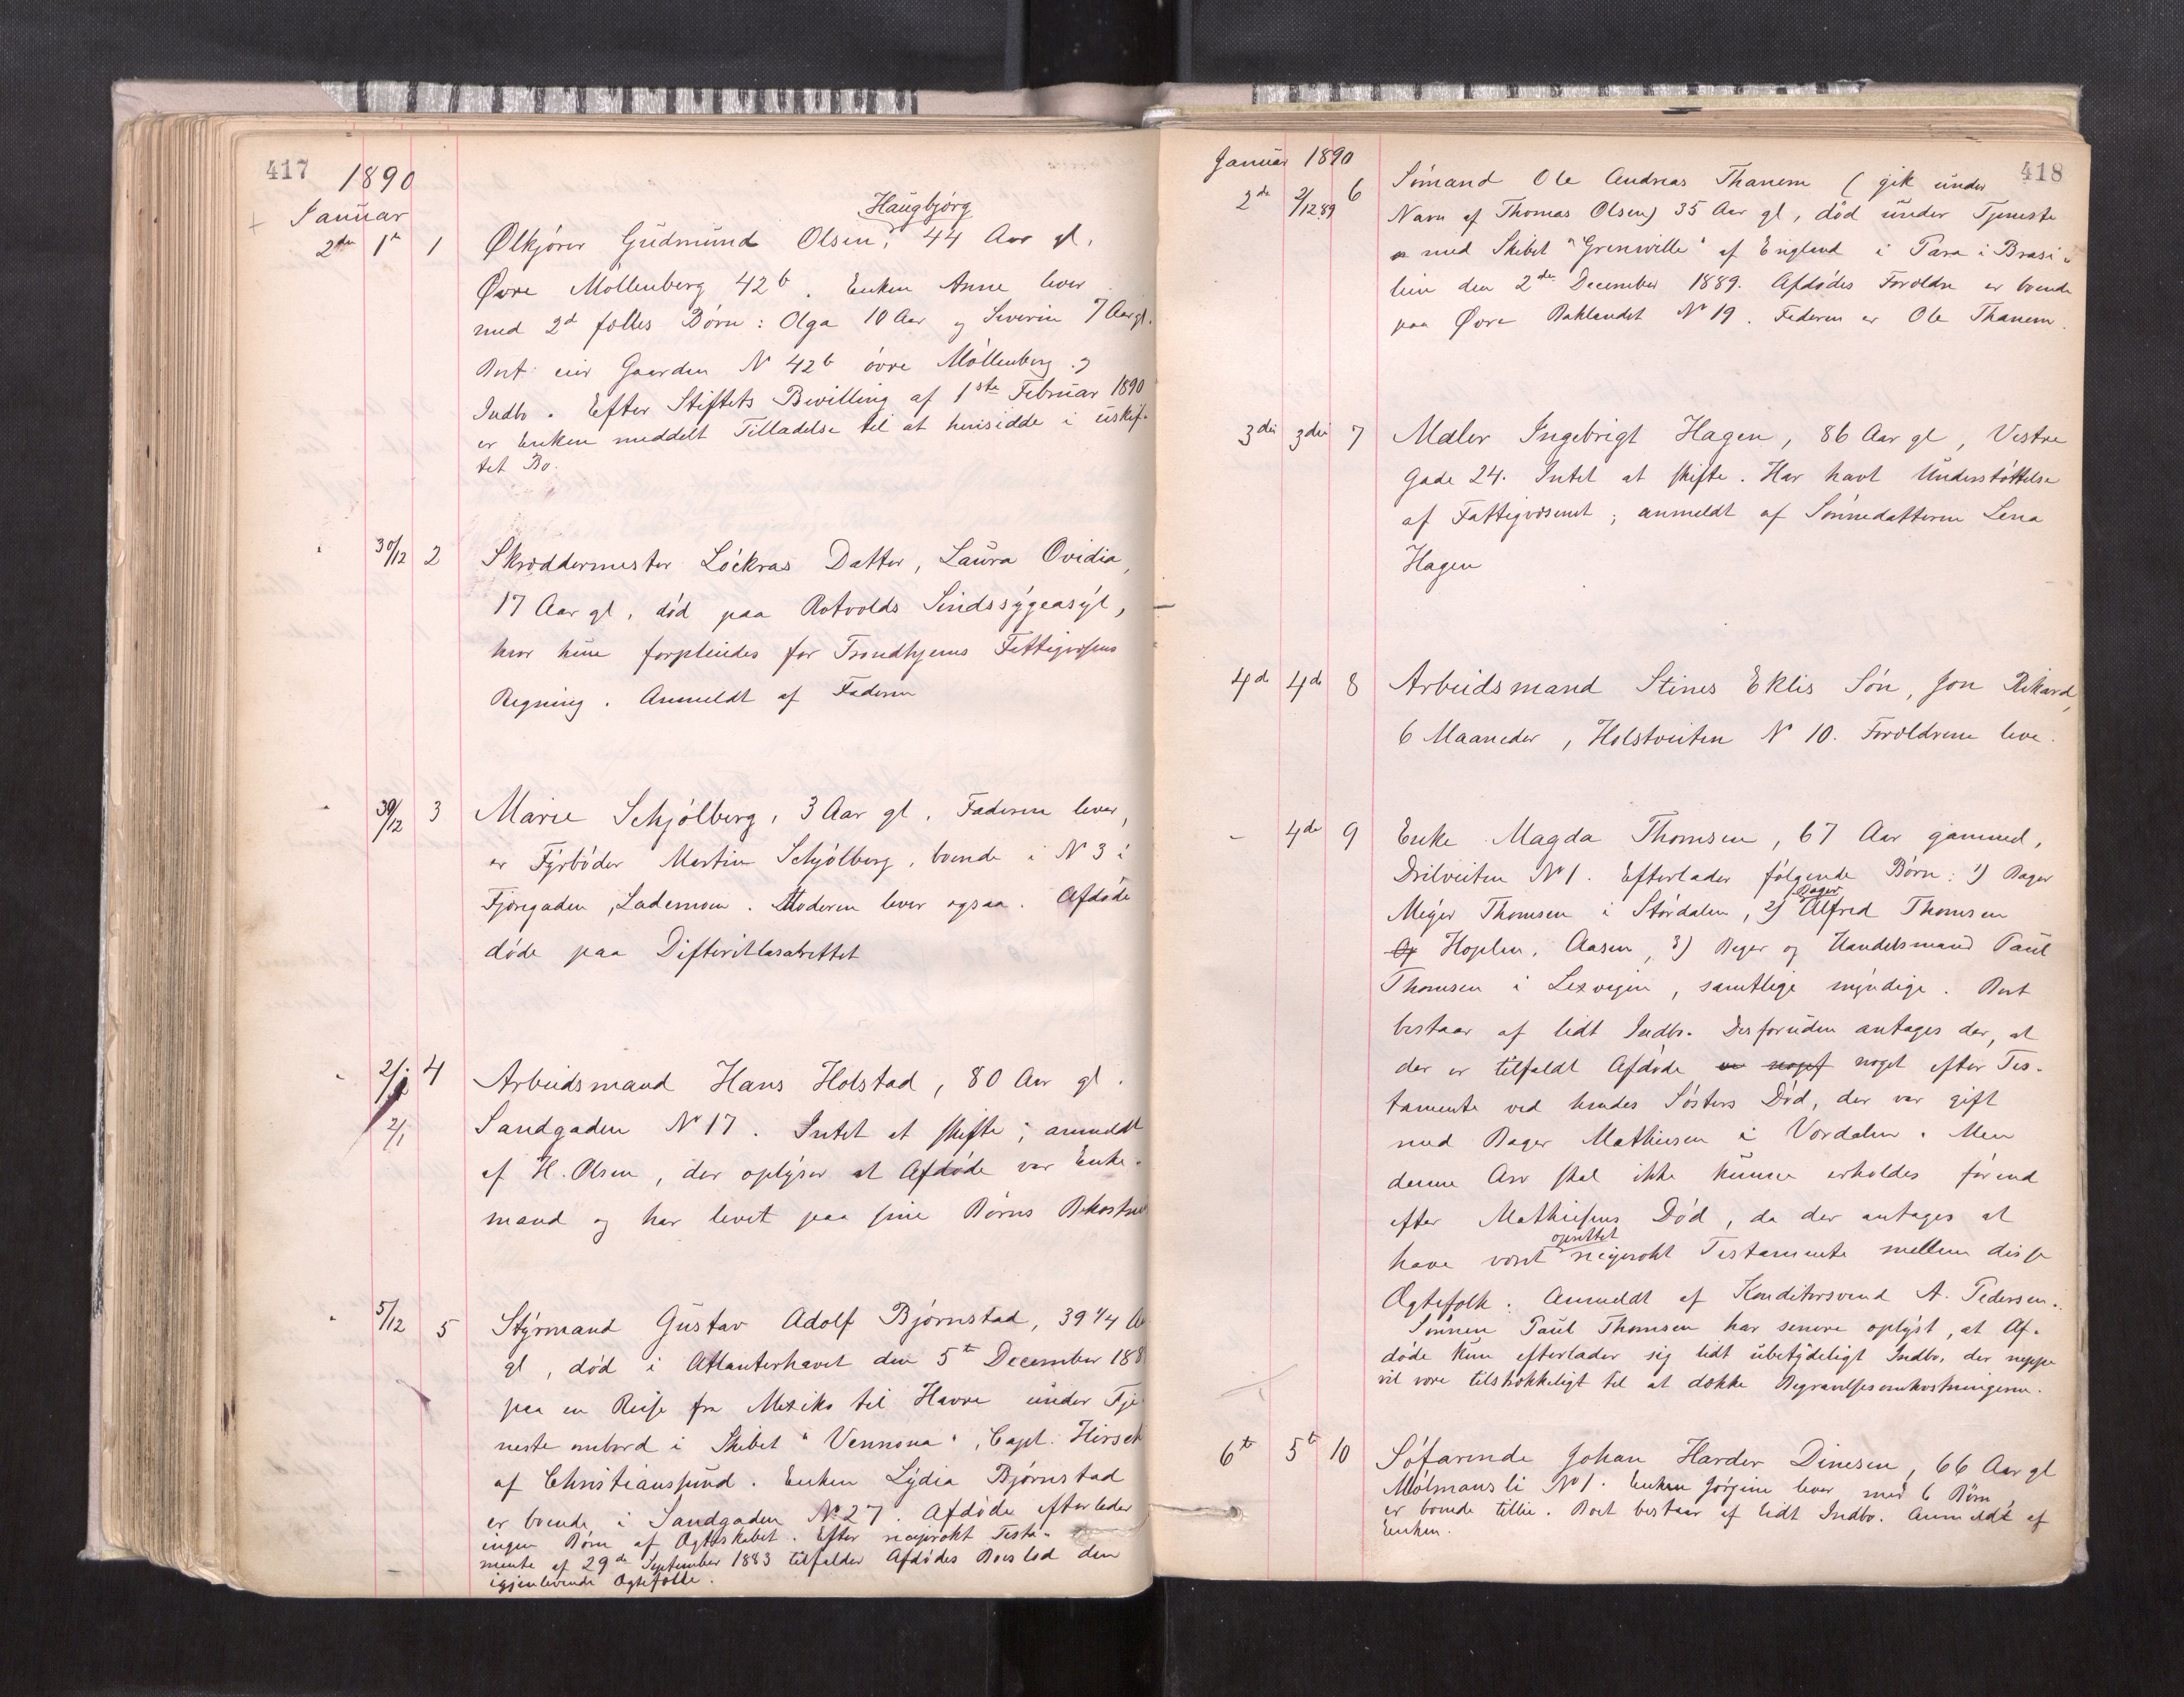 417
1890
Januar
2den 1te 1 Ølkjører Gudmund Olsen, Haugbjørg 44 Aar gl.
Øvre Møllenberg 42b. Enken Anne lever
med 2d fælles Børn: Olga 10 Aar og Severin 7 Aar gl.
Boet eier Gaarden N 42b øvre Møllenberg og
Indbo. Efter Stiftets Bevilling af 1ste Februar 1890
er Enken meddelt Tilladelse til at hensidde i uskif-
tet Bo.
30/12 2 Skræddermester Löckras Datter, Laura Ovidia,
17 Aar gl, død paa Rotvolds Sindssygeasyl,
hvor hun forpleiedes for Trondhjems Fattigvæsens
Regning. Anmeldt af Faderen
30/12 3 Marie Schjølberg, 3 Aar gl. Faderen lever,
er Fyrbøder Martin Schjølberg, boende i N 3 i
Fjæregaden, Lademoen. Moderen lever ogsaa. Afdøde
døde paa Difteritlasarettet
2/1 4 Arbeidsmand Hans Holstad, 80 Aar gl.
2/1 Sandgaden N 17. Intet at skifte; anmeldt
af H. Olsen, der oplyser at Afdøde var Enke-
mand og har levet paa sine Børns Bekostni
5/12 5 Styrmand Gustav Adolf Bjørnstad, 39 1/4 Aa
gl, død i Atlanterhavet den 5te December 188
paa en Reise fra Mexiko til Havre under Tje
neste ombord i Skibet "Vennona", Capt. Hirsch
af Christianssund. Enken Lydia Bjørnstad
er boende i Sandgaden No 27. Afdøde efterlader
ingen Børn af Ægteskabet. Efter reciprokt Testa-
mente af 29de September 1883 tilfalder Afdødes Boeslod den
igjenlevende Ægtefælle.
418
Januar 1890
2de 2/12.89 6 Sømand Ole Andreas Thanem (gik under
Navn af Thomas Olsen) 35 Aar gl, død under Tjeneste
med Skibet "Grenville" af England i Para i Brasi-
lien den 2den December 1889. Afdødes Forældre er boende
paa Øvre Baklandet No 19. Faderen er Ole Thanem.
3die 3die 7 Maler Ingebrigt Hagen, 86 Aar gl, Vestre
Gade 24. Intet at skifte. Har havt Understøttelse
af Fattigvæsenet; anmeldt af Sønnedatteren Lena
Hagen
4de 4de 8 Arbeidsmand Stines Eklis Søn, Jon Rikard,
6 Maaneder, Holstveiten N 10. Forældrene leve.
4de 9 Enke Magda Thomsen, 67 Aar gammel,
Drilveiten No 1. Efterlader følgende Børn: 1) Bager
Meyer Thomsen i Størdalen, 2) Bager Alfred Thomsen
Hoplen, Aasen, 3) Bager og Handelsmand Paul
Thomsen i Lexvigen, samtlige myndige. Boet
bestaar af lidt Indbo. Desforuden antages der, at
der er tilfaldt Afdøde en noget noget efter Tes-
tamente ved hendes Søsters Død, der var gift
med Bager Mathiesen i Værdalen. Men
denne Arv skal ikke kunne erholdes førend
efter Mathiesens Død, da der antages at
have været oprettet reciprokt Testamente mellem disse
Ægtefolk. Anmeldt af Konditorsvend A. Pedersen.
Sønnen Paul Thomsen har senere oplyst, at Af-
døde kun efterlader sig lidt ubetydeligt Indbo, der neppe
vil være tilstrækkeligt til at dække Begravelsesomkostningerne.
6te 5te 10 Søfarende Johan Harder Dinesen, 66 Aar gl
Mølmansli No 1. Enken Jørgine lever med 6 Børn
er boende tillie. Boet bestaar af lidt Indbo. Anmeldt af
Enken.